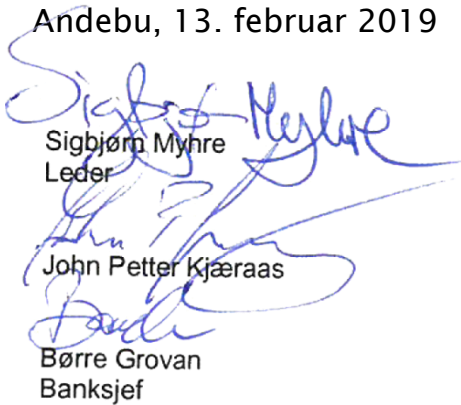 Andebu, 13. februar 2019
Sigbjørn Myhre
Sigbjørn Myhre
Leder
John P
John Petter Kjæraas
Børre Grovan
Banksjef